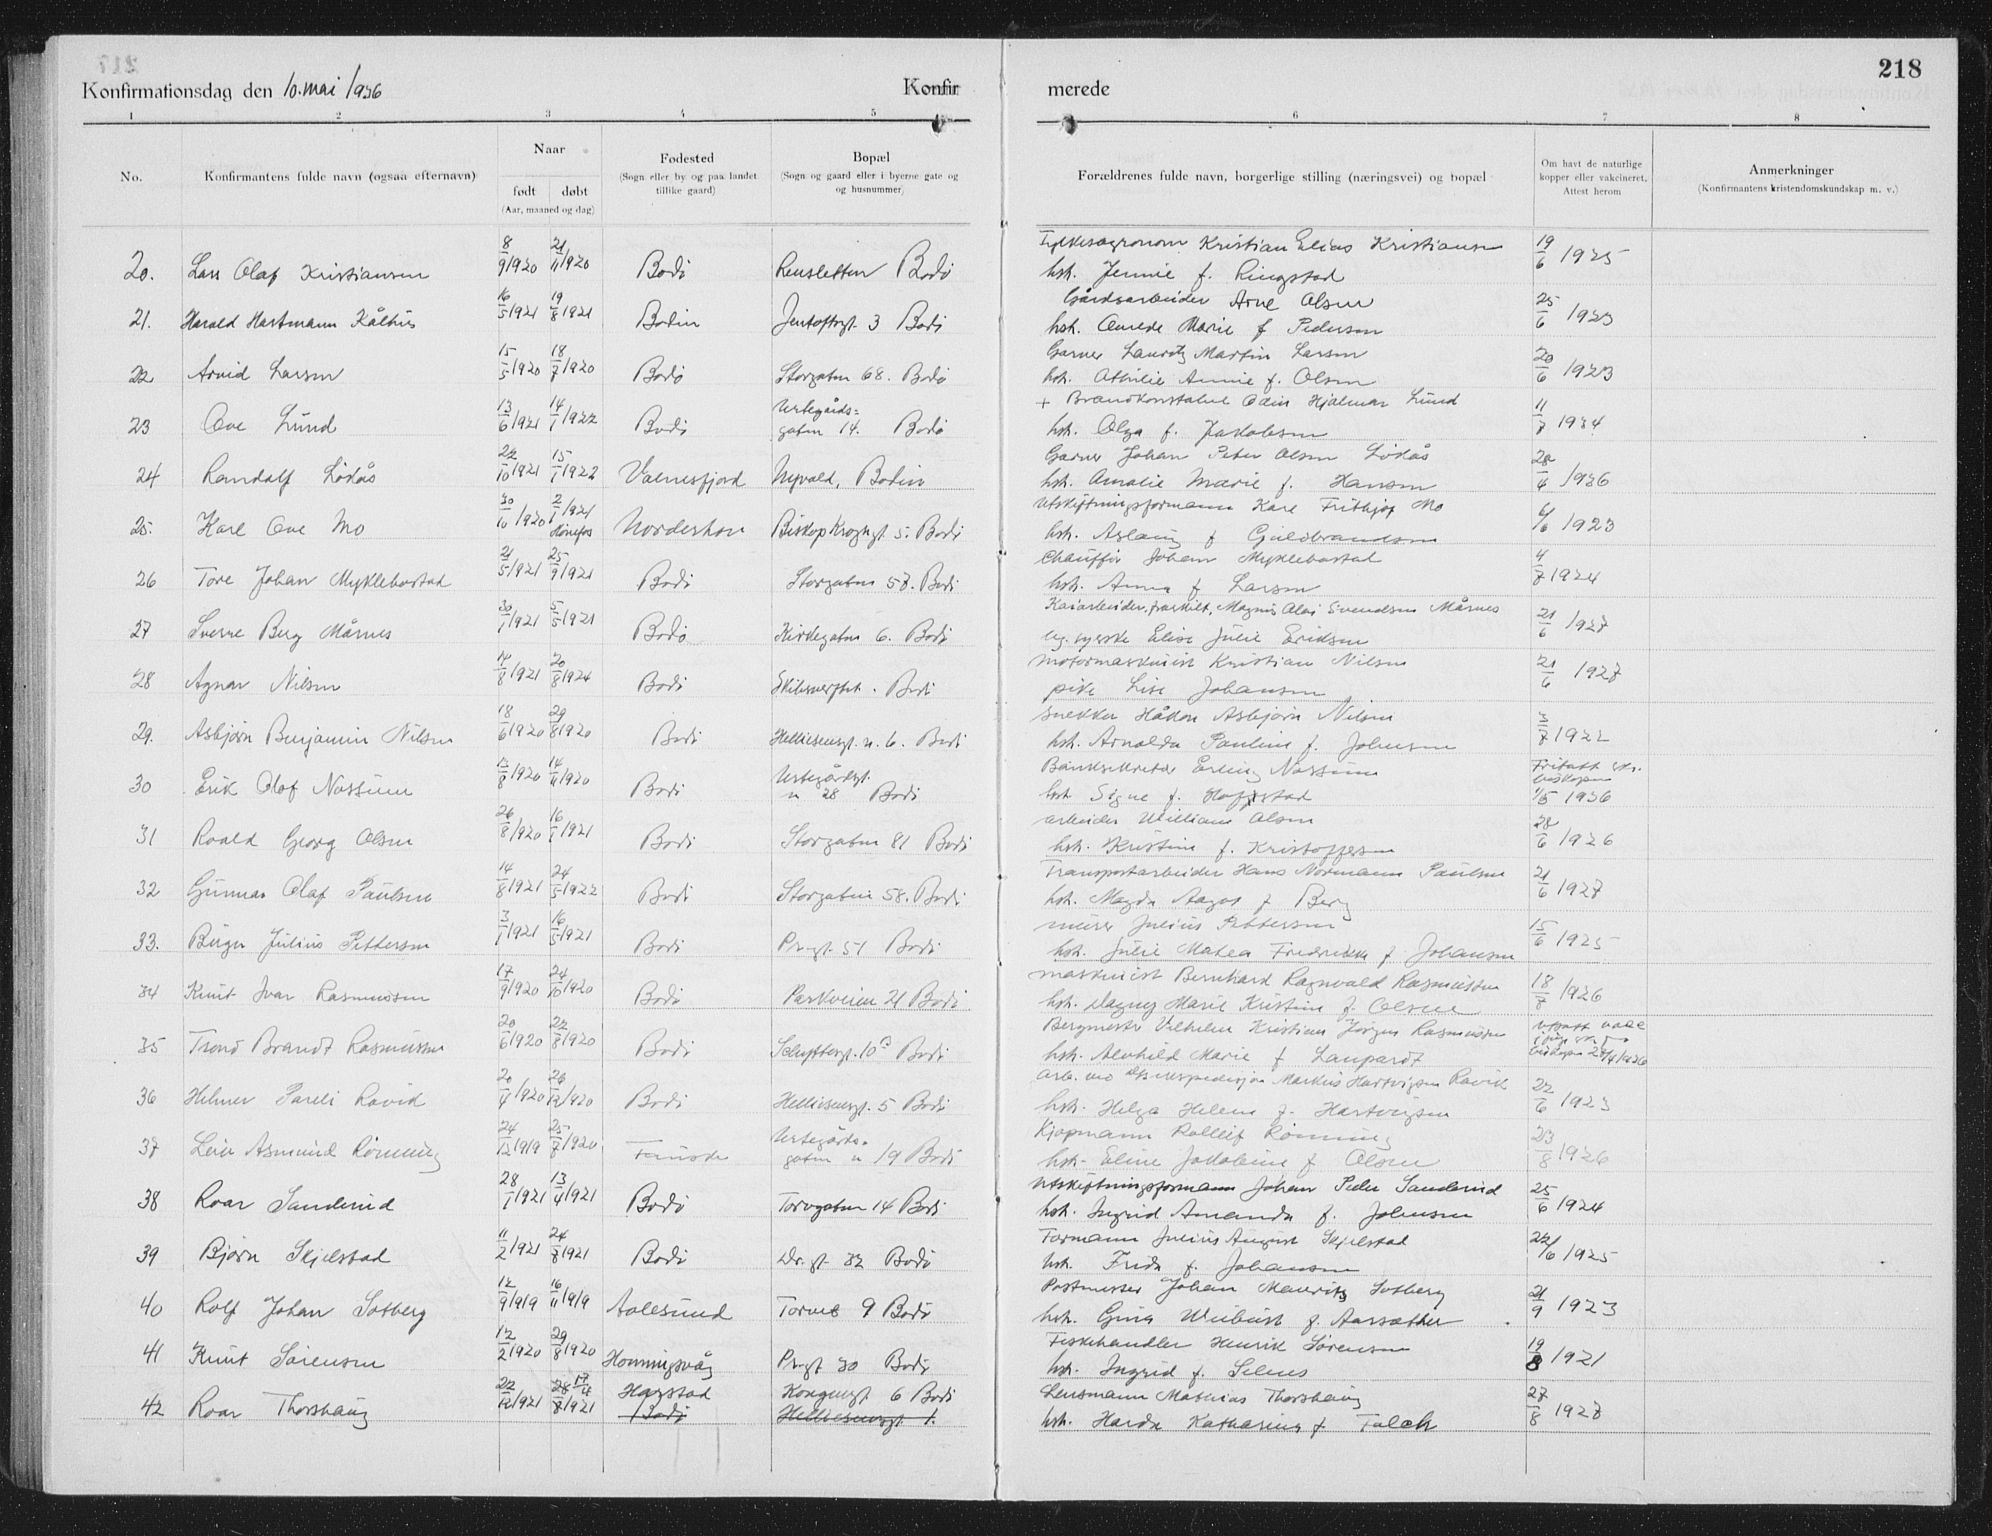 218
Konfirmationsdag den 10. mai 1936
Konfirmerede
1 2 3 4 5 6 7 8
No.
Konfirmantens fulde navn (ogsaa efternavn)
Naar
født døbt
(Aar, maaned og dag)
Fødested
(Sogn eller by og paa landet
tillike gaard)
Bopæl
(Sogn og gaard eller i byerne gate og
og husnummer)
Forældrenes fulde navn, borgerlige stilling (næringsvei) og bopæl
Om havt de naturlige
kopper eller vakcineret.
Attest herom
Anmerkninger
(Konfirmantens kristendomskundskap m. v.)
20. Lars Olaf Kristiansen 8/9 1920 21/11 1920 Bodø Rensletten Bodø Fylkesagronom Kristian Elias Kristiansen 19/6 1925
hst. Jennie f. Ringstad
21. Harald Hartmann Kålhus 16/5 1921 19/8 1921 Bodin Jentoftsgt. 3 Bodø Gårdsarbeider Arne Olsen 25/6 1923
hst. Marie f Pedersen
22 Arvid Larsen 15/5 1920 18/7 1920 Bodø Storgaten 68. Bodø Garver Lauritz Martin Larsen 20/6 1923
hst. Othilie Annie f. Olsen
23 Ove Lund 13/6 1921 14/1 1922 Bodø Urtegårds-
gaten 14. Bodø + Brandkonstabel Odin Hjalmar Lund 11/7 1934
hst. Olga f. Jakobsen
24 Randolf Løkås 22/10 1921 15/1 1922 Valnesfjord Nyvold, Bodin Garver Johan Peter Olsen Løkås 28/4 1936
hst. Amalie Marie f. Hansen
25. Karl Ove Mo 30/10 1920 2/1 1921
Hønefos Norderhov Biskop Kroghgt. 5. Bodø Utskiftningsformann Kare Frithjof Mo 6/6 1923
hst. Aslaug f Guldbrandsen
26 Tore Johan Myklebostad 21/5 1921 25/9 1921 Bodø Storgaten 57. Bodø Chauffør Johan Myklebostad 4/7 1924
hst. Anna f Larsen
27 Sverre Berg Mårnes 30/1 1921 5/5 1921 Bodø Kirkegaten 6. Bodø Kaiarbeider, fraskilt, Magnus Olai Svendsen Mårnes 21/6 1927
Elise Julie Eriksen
28 Agnar Nilsen 14/8 1921 20/8 1924 Bodø Skibsverftet. Bodø Motormaskinist Kristian Nilsen 21/6 1927
pike Lise Johansen
29. Asbjørn Benjamin Nilsen 18/6 1920 29/8 1920 Bodø Helliesensgt. n. 6. Bodø Snekker Håkon Asbjørn Nilsen 3/7 1922
hst. Arnolda Pauline f. Johnsen
30 Erik Olaf Nossum 13/8 1920 14/11 1920 Bodø Urtegårdsgt.
n 28 Bodø Banksekretær Erling Nossum Fritatt
biskopen
hst Signe f. Hoffstad 1/5 1936
31 Roald Georg Olsen 26/8 1920 16/1 1921 Bodø Storgaten 81 Bodø arbeider William Olsen 28/6 1926
hst. Kristine f. Kristoffersen
32 Gunnar Olaf Paulsen 14/8 1921 24/5 1922 Bodø Storgaten 58. Bodø Transportarbeider Hans Normann Paulsen 21/6 1927
hst. Magda Aagot f Berg
33. Birger Julius Pettersen 3/1 1921 16/5 1921 Bodø Pr.gt. 51 Bodø murer Julius Pettersen 15/6 1925
hst. Julie Matea Fredrikke f Johansen
34 Knut Ivar Rasmussen 17/9 1920 24/10 1920 Bodø Parkveien 21 Bodø maskinist Bernhard Ragnvald Rasmussen 18/7 1926
hst. Dagny Marie Kristine f. Olsen
35 Trond Brandt Rasmussen 20/6 1920 22/8 1920 Bodø Schyttesgt. 10 B Bodø Bergmester Vilhelm Kristian Jørgen Rasmussen
hst. Alvhild Marie f Laupardt biskopen 27/4 1936
36 Helmer Pareli Røvik 20/4 1920 26/12 1920 Bodø Helliesensgt. 5 Bodø Arb. ved Markus Hartvigsen Røvik 22/6 1923
hst. Helga Helene f. Hartvigsen
37 Leiv Asmund Rønning 24/12 1919 25/7 1920 Fauske Urtegårds-
gaten n 19 Bodø Kjøpmann Rolleif Rønning 23/8 1926
hst. Eline Jakobine f Olsen
38 Roar Sanderud 28/1 1921 13/4 1921 Bodø Torvgaten 14 Bodø Utskiftningsformann Johan Peder Sanderud 25/6 1924
hst. Ingrid Amanda f. Johnsen
39 Bjørn Skjelstad 11/2 1921 24/8 1921 Bodø Dr. gt. 32 Bodø Formann Julius August Skjelstad 22/6 1925
hst. Frida f. Johansen
40 Rolf Johan Solberg 12/9 1919 16/11 1919 Aalesund Torvet 9 Bodø Postmester Johan Mauritz Solberg 21/9 1923
hst. Gina f. Aarsæther
41 Knut Sørensen 12/2 1920 29/8 1920 Honningsvåg Pr.gt 30 Bodø Fiskehandler Henrik Sørensen 19/8 1921
hst. Ingrid f. Selnes
42 Roar Thorshaug 22/12 1921 28/8 17/4 1921 Harstad Kongensgt 6 Bodø Lensmann Mathias Thorshaug 27/8 1928
Bodø Helliesensgt 1. hst. Harda Katharina f Falch